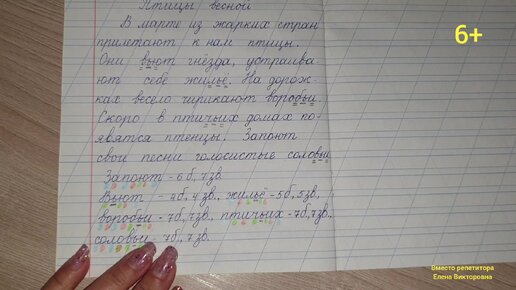 Птицы весной
В марте из жарких стран
прилетают к нам птицы.
Они вьют гнёзда, устраива
ют себе жильё. На дорож-
ках весело чирикают воробьи.
Скоро в птичьих домах по-
явятся птенцы. Запоют
свои песни голосистые соловьи
Запоют - 6 б, 7 зв.
Вьют - 4 б, 4 зв., жильё - 5 б, 5 зв,
воробьи - 7 б, 7 зв, птичьих - 7 б, 7 зв.
соловьи - 7 б, 7 зв.
6+
Вместо репетитора
Елена Викторовна